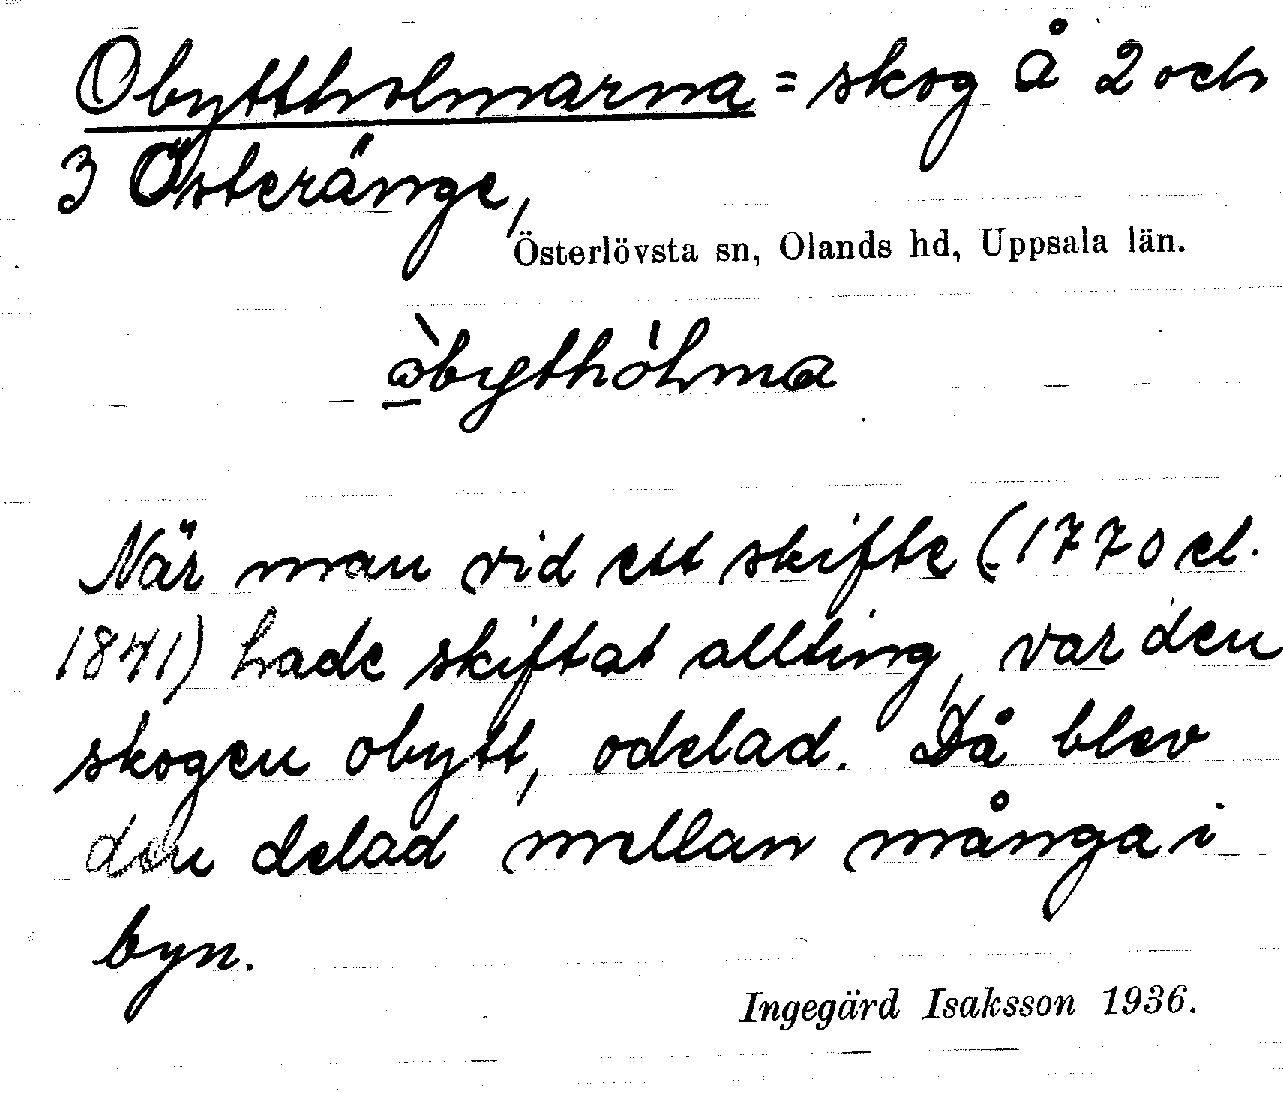 Obyttholmarna = skog å 2 och
3 Österänge,
Österlövsta sn, Olands hd, Uppsala län.
òbythólma
När man vid ett skifte (1770 el.
1841) hade skiftat allting, var den
skogen obytt, odelad. Då blev
den delad mellan många i
byn.
Ingegärd Isaksson 1936.